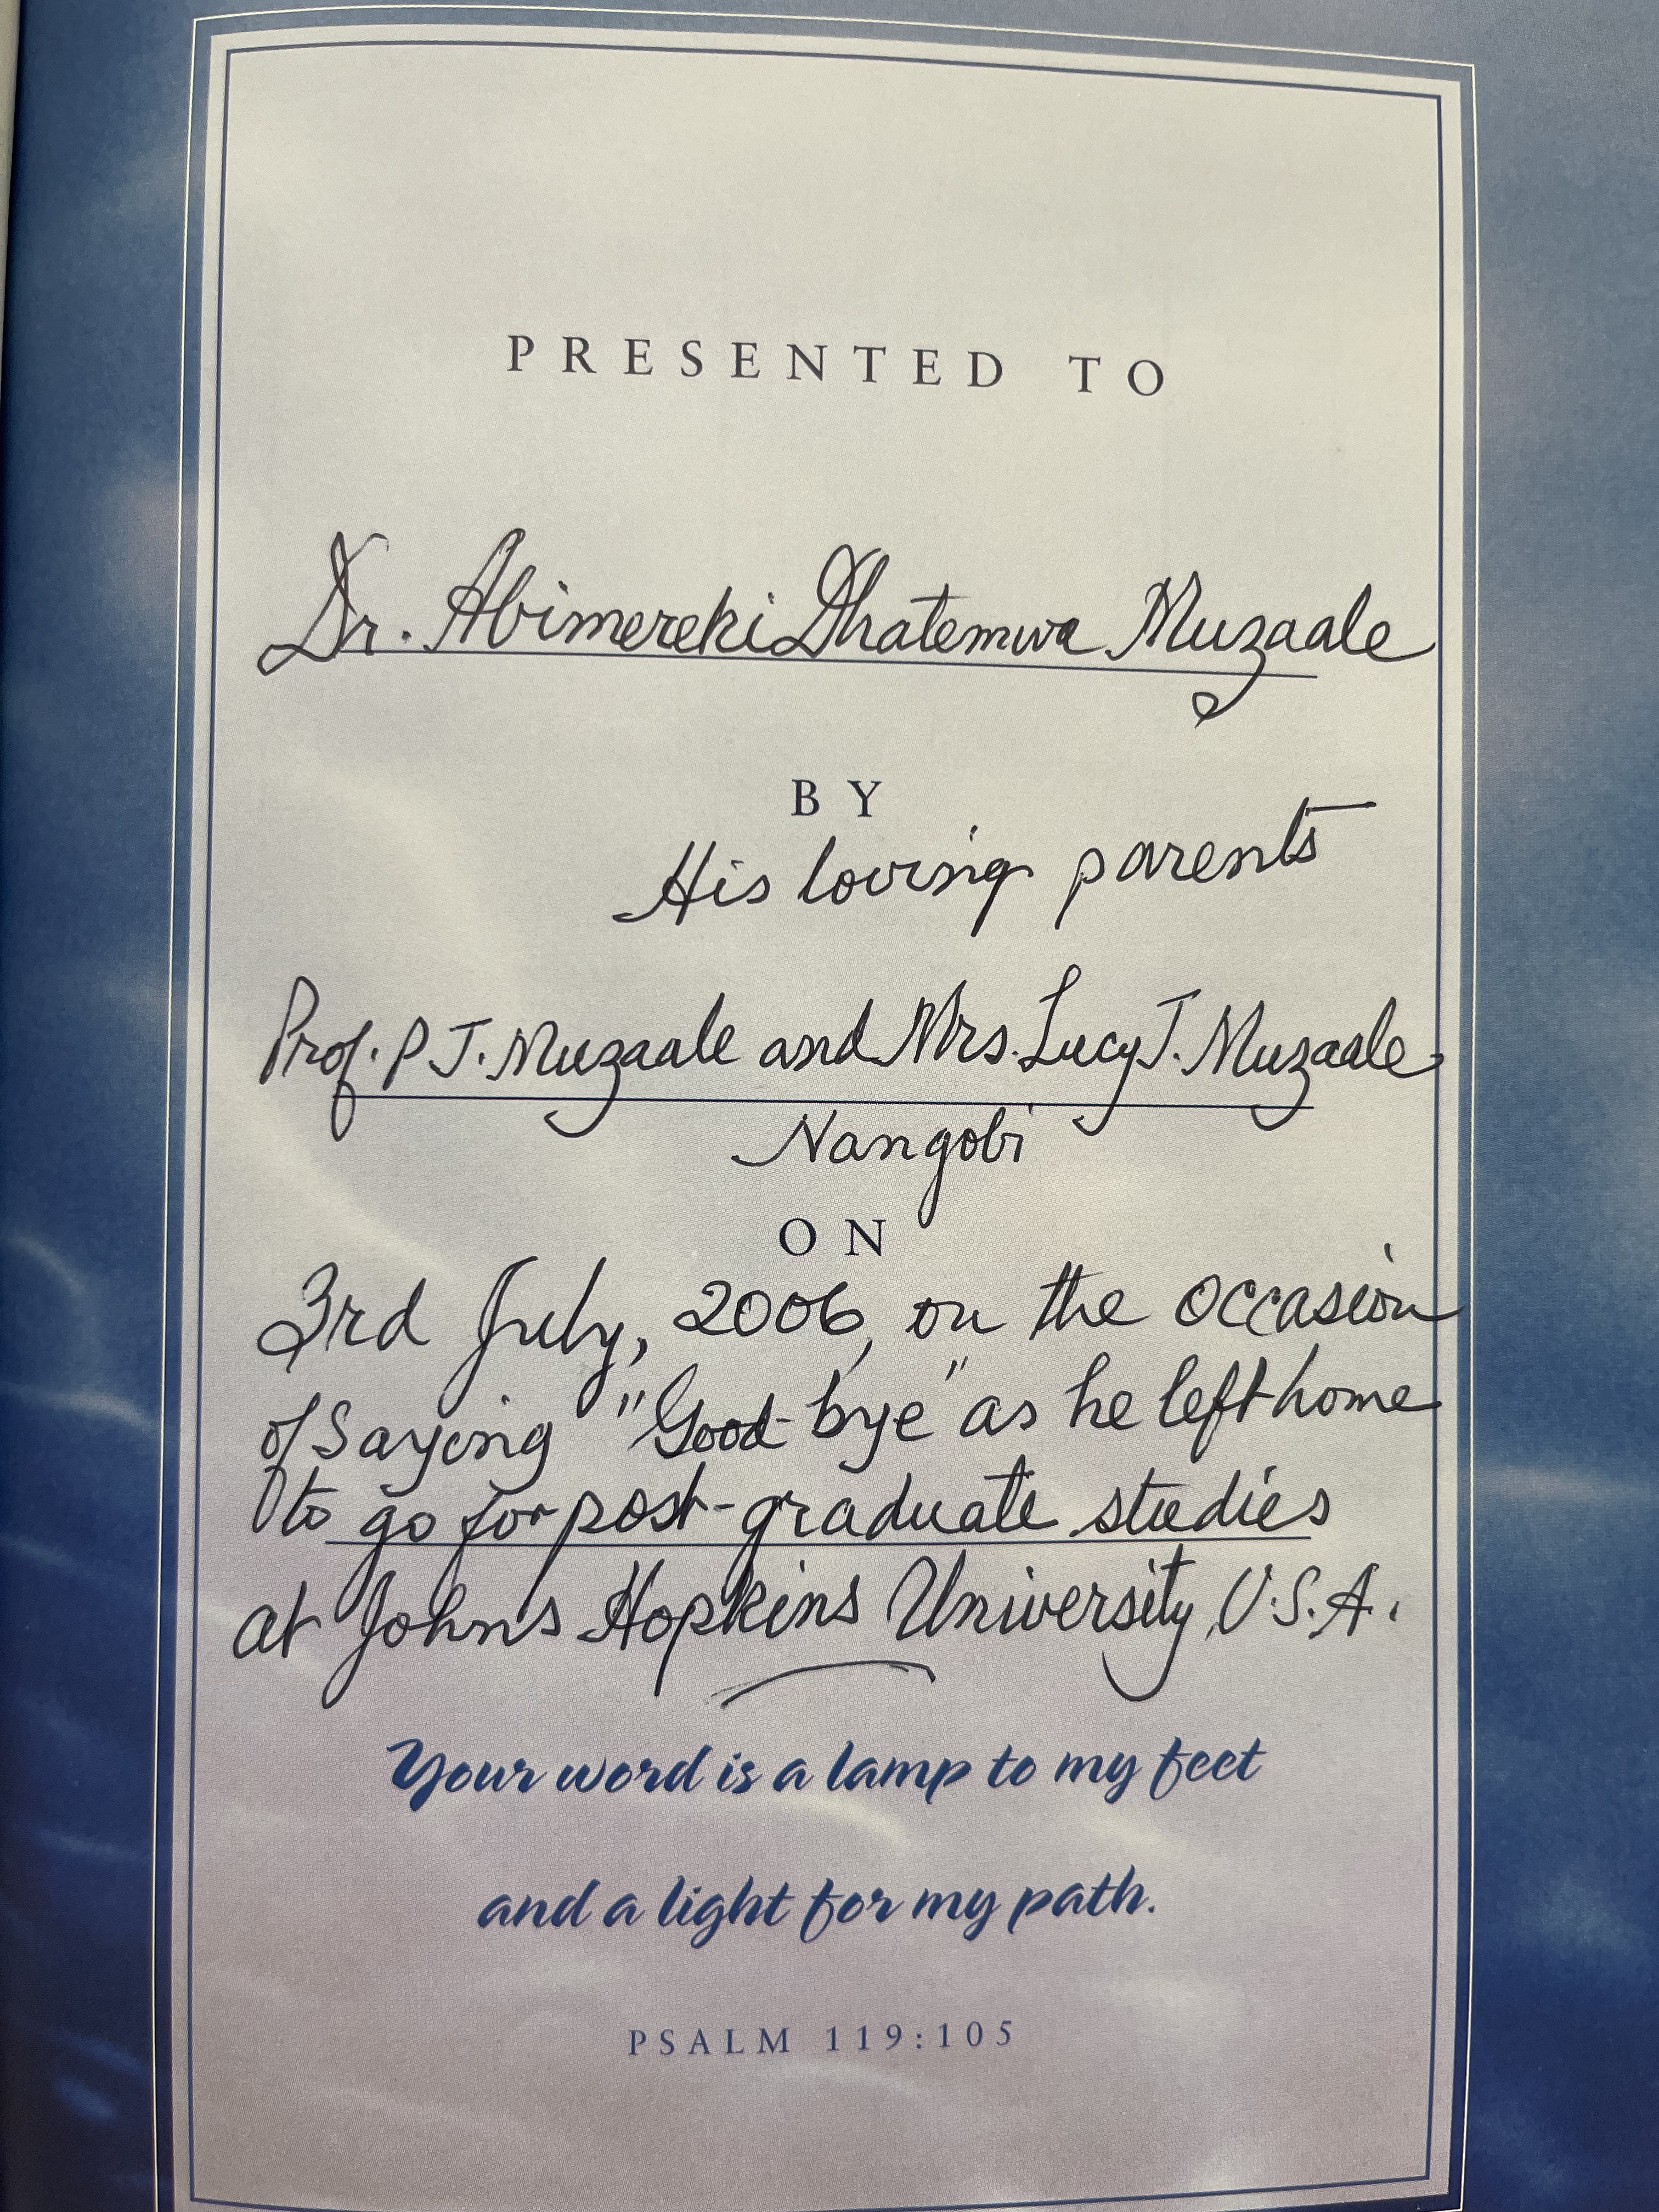 PRESENTED TO
Dr. Abimereki Dhatemwa Muzaale
BY
His loving parents
Prof. P J. Muzaale and Mrs. Lucy J. Muzaale
Nangobi
ON
3rd July, 2006, on the occasion
of saying "Good-bye" as he left home
to go for post-graduate studies
at Johns Hopkins University, U.S.A.
Your word is a lamp to my feet
and a light for my path.
PSALM 119:105